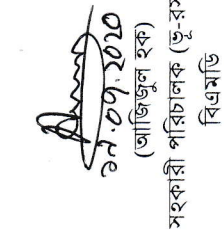 ১৯.০৭.২০২০
(আজিজুল হক)
সহকারী পরিচালক (ভূ-রস
বিএমডি